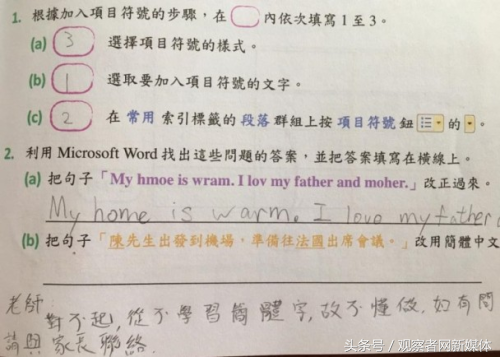 1. 根據加入項目符號的步驟,在 內依次填寫1至3。
(a) 3 選擇項目符號的樣式。
(b) 1 選取要加入項目符號的文字。
(c) 2 在 常用 索引標籤的 段落 群組上按 項目符號 鈕 的 。
2. 利用 Microsoft Word 找出這些問題的答案,並把答案填寫在橫線上。
(a) 把句子「My hmoe is wram. I lov my father and moher.」改正過來。
My home is warm. I love my father
(b) 把句子「陳先生出發到機場,準備往法國出席會議。」改用簡體中文
老師:
對不起,從不學習簡體字,故不懂做,如有問
請與家長聯絡.
头条号/观察者网新媒体